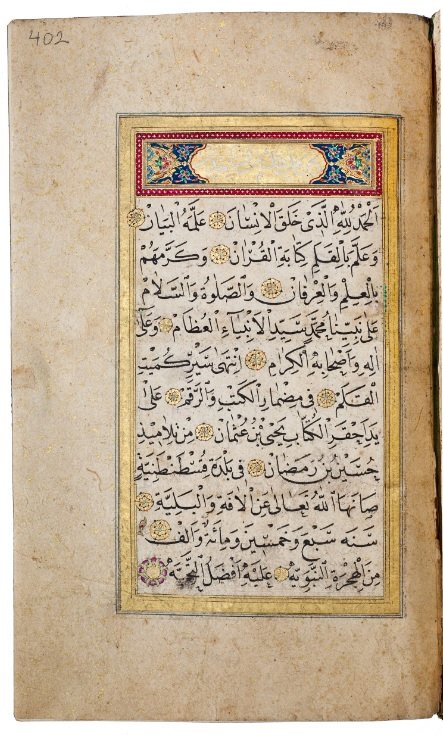 402
اَلْحَمْدُ لِلّٰهِ الَّذٖى خَلَقَ الْاِنْسَانَ عَلَّمَهُ الْبَيَانَ
وَعَلَّمَ بِالْقَلَمِ كِتَابَةَ الْقُرْاٰنِ وَكَرَّمَهُمْ
بِالْعِلْمِ وَالْعِرْفَانِ وَالصَّلٰوةُ وَالسَّلَامُ
عَلٰى نَبِيِّنَا مُحَمَّدٍ سَيِّدِ الْاَنْبِيَٓاءِ الْعِظَامِ وَعَلٰٓى
اٰلِهٖ وَاَصْحَابِهِ الْكِرَامِ اِنْتَهٰى سَيْرُ كُمَيْتِ
الْقَلَمِ فٖى مِضْمَارِ الْكَتْبِ وَالرَّقْمِ عَلٰى
يَدِ اَحْقَرِ الْكُتَّابِ يَحْيَى بْنِ عُثْمَانَ مِنْ تَلَامٖيذِ
حُسَيْنِ بْنِ رَمَضَانَ فٖى بَلْدَةِ قُسْطَنْطِنِيَّةَ
صَانَهَا اللّٰهُ تَعَالٰى عَنِ الْاٰفَةِ وَالْبَلِيَّةِ
سَنَةَ سَبْعٍ وَخَمْسٖينَ وَمِائَةٍ وَاَلْفٍ
مِنَ الْهِجْرَةِ النَّبَوِيَّةِ عَلَيْهِ اَفْضَلُ التَّحِيَّةِ